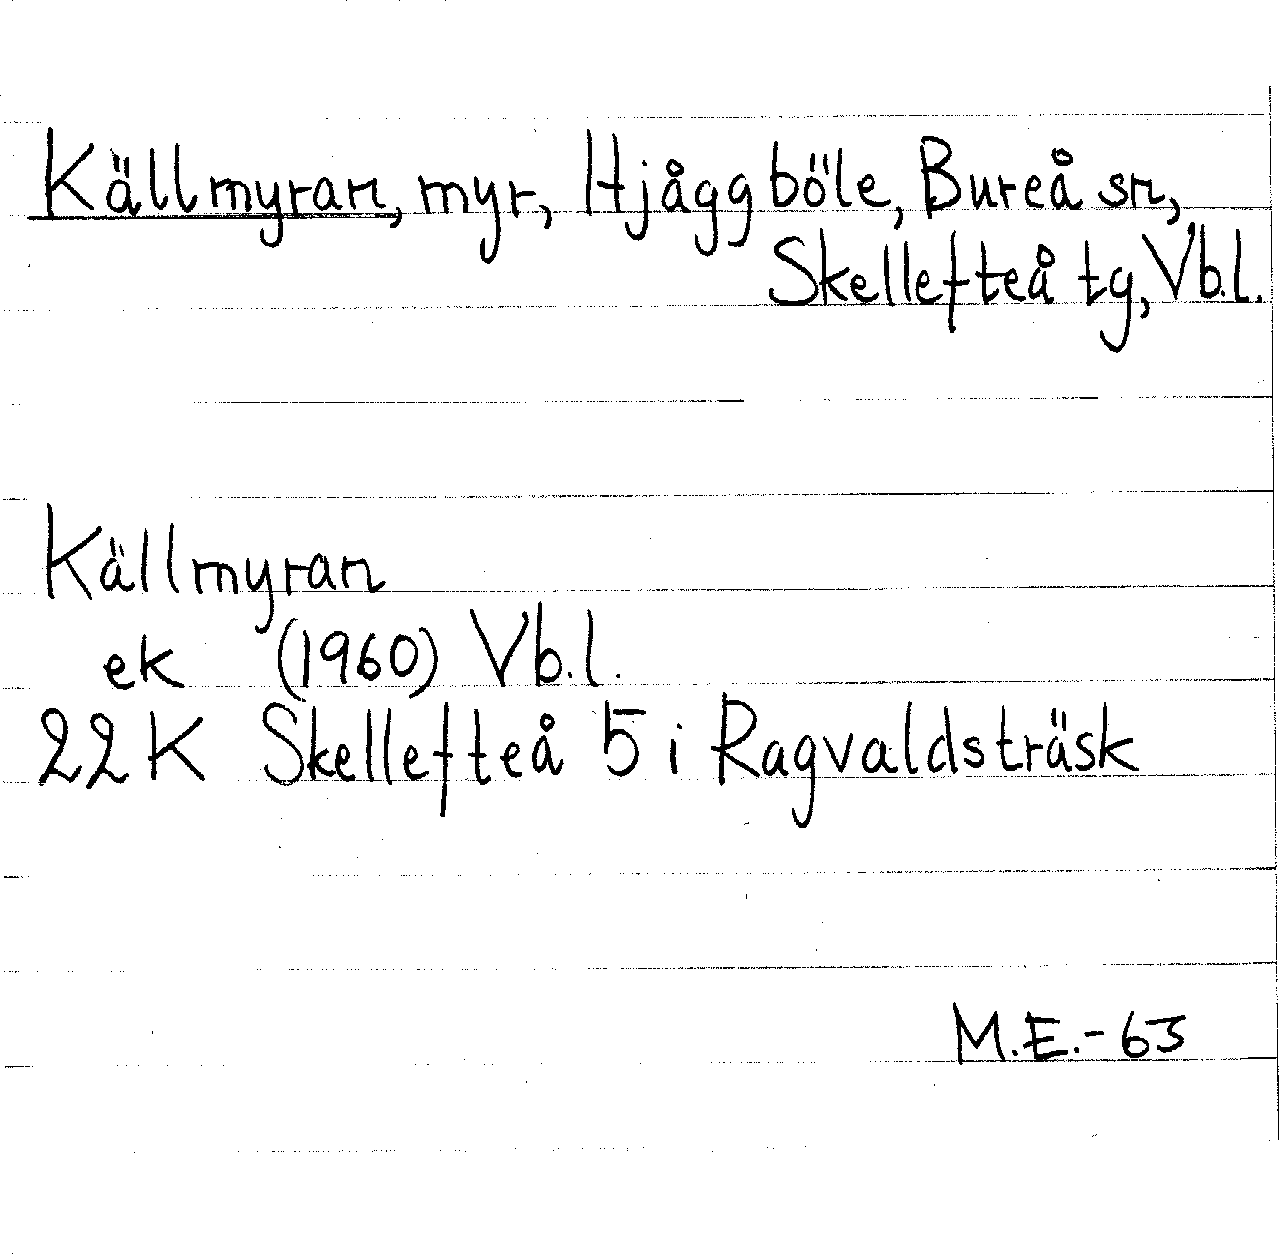 Källmyran, myr, Hjåggböle, Bureå sn,
Skellefteå tg, Vb.l.
Källmyran
ek (1960) Vb.l.
22K Skellefteå 5 i Ragvaldsträsk
M.E.-63